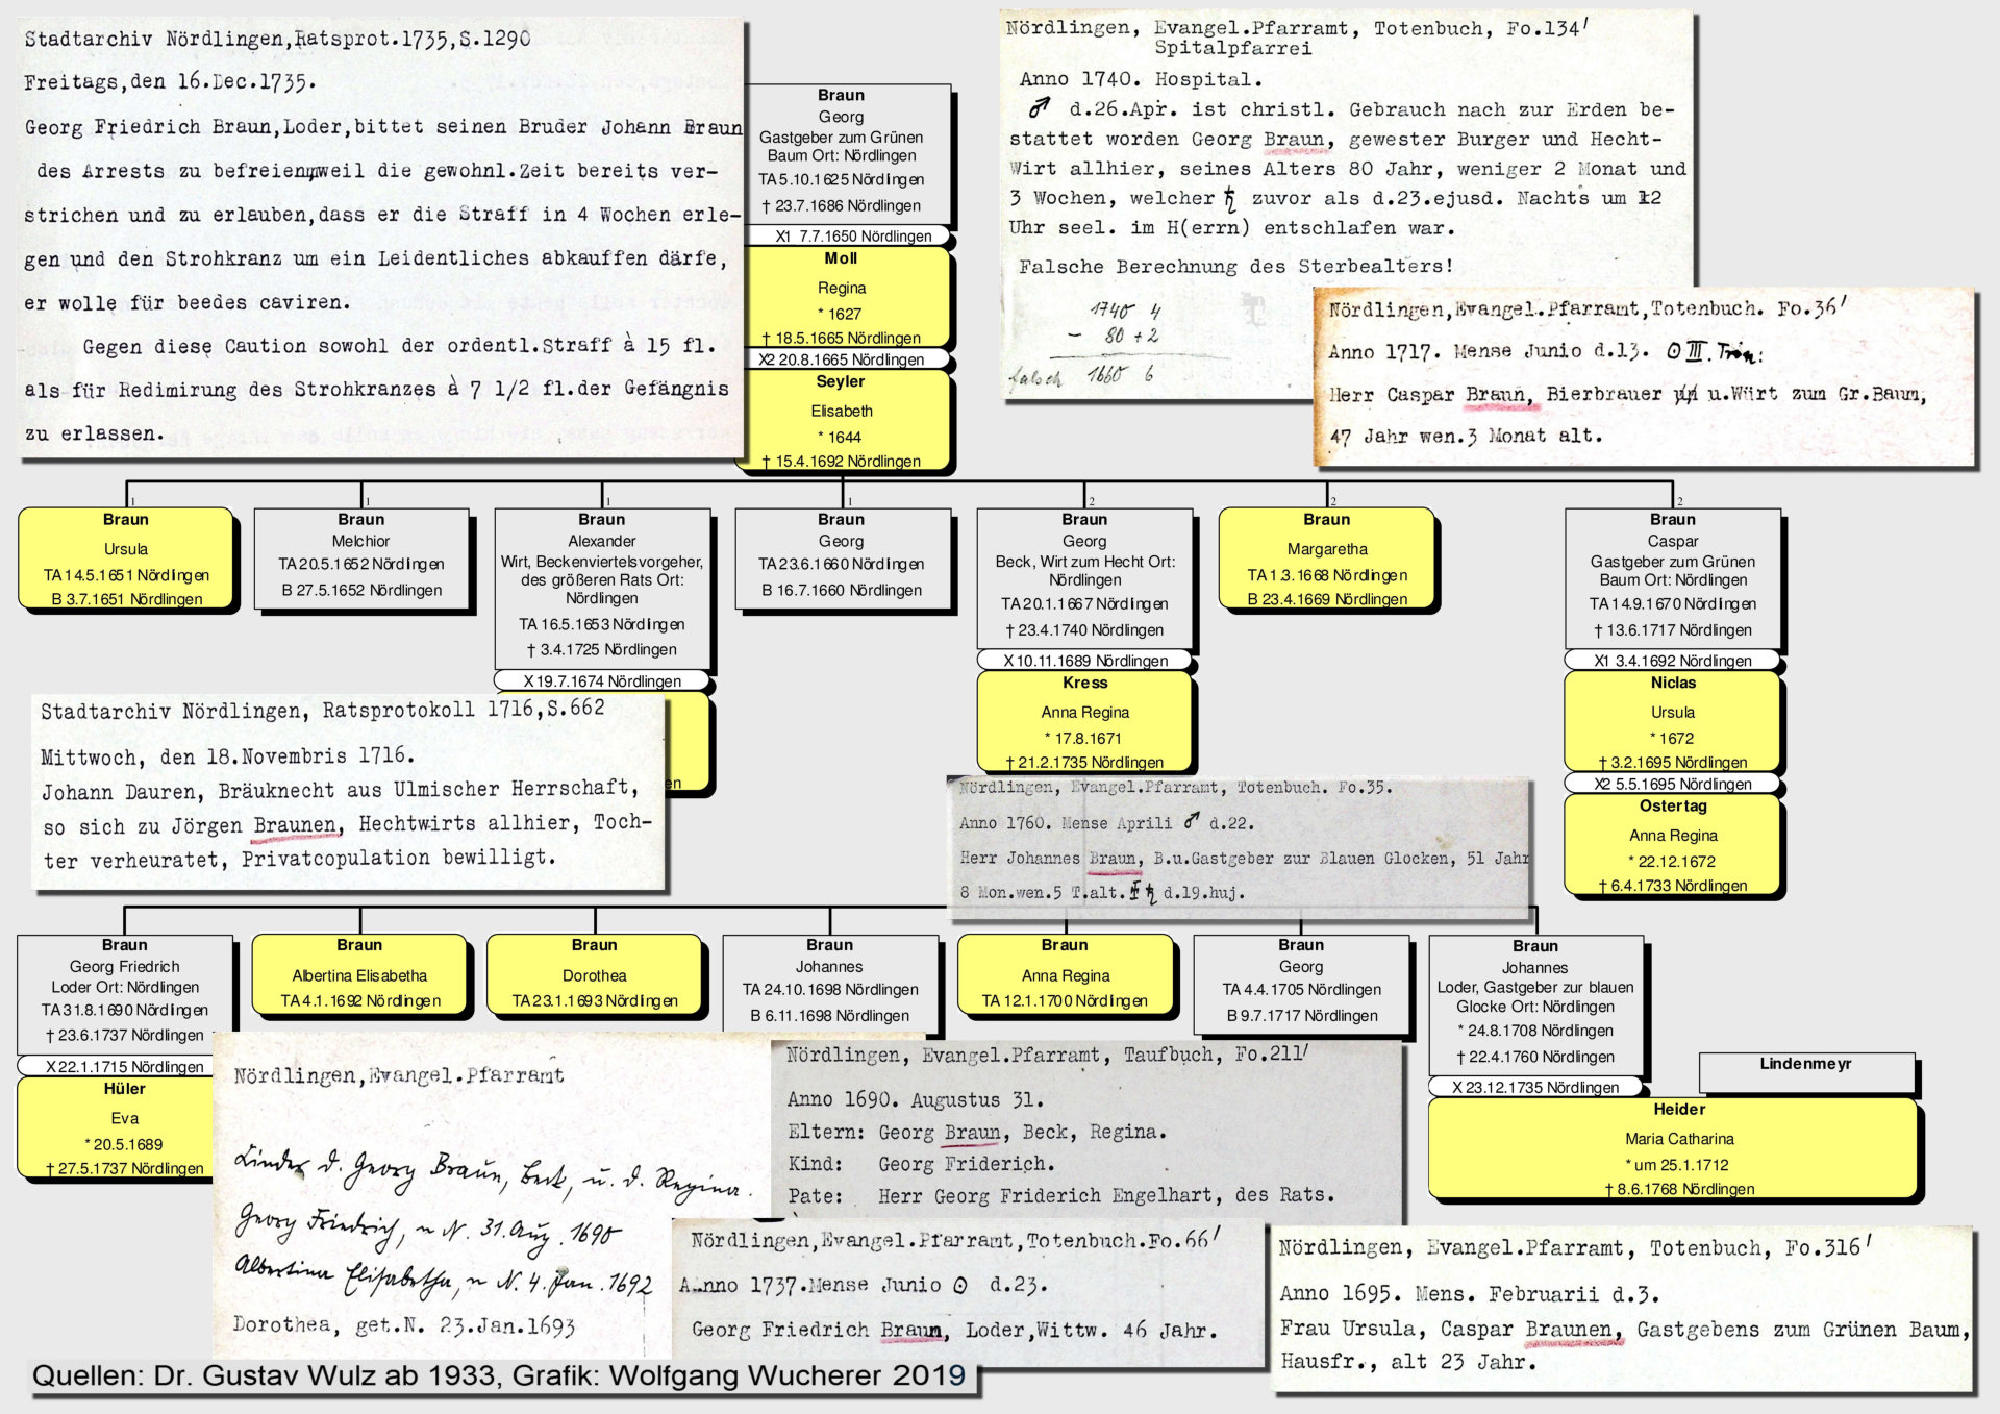 Stadtarchiv Nördlingen,Ratsprot.1735,S.1290
Freitags,den 16.Dec.1735.
Georg Friedrich Braun,Loder,bittet seinen Bruder Johann Braun
des Arrests zu befreien,weil die gewohnl.Zeit bereits ver-
strichen und zu erlauben,dass er die Straff in 4 Wochen erle-
gen und den Strohkranz um ein Leidentliches abkauffen därfe,
er wolle für beedes caviren.
Gegen diese Caution sowohl der ordentl.Straff à 15 fl.
als für Redimirung des Strohkranzes à 7 1/2 fl.der Gefängnis
zu erlassen.
Braun
Georg
Gastgeber zum Grünen
Baum Ort: Nördlingen
TA 5.10.1625 Nördlingen
† 23.7.1686 Nördlingen
X1 7.7.1650 Nördlingen
Moll
Regina
* 1627
† 18.5.1665 Nördlingen
X2 20.8.1665 Nördlingen
Seyler
Elisabeth
* 1644
† 15.4.1692 Nördlingen
Nördlingen, Evangel.Pfarramt, Totenbuch, Fo.134'
Spitalpfarrei
Anno 1740. Hospital.
♂ d.26.Apr. ist christl. Gebrauch nach zur Erden be-
stattet worden Georg Braun, gewester Burger und Hecht-
Wirt allhier, seines Alters 80 Jahr, weniger 2 Monat und
3 Wochen, welcher ♄ zuvor als d.23.ejusd. Nachts um 12
Uhr seel. im H(errn) entschlafen war.
Falsche Berechnung des Sterbealters!
1740 4
- 80 +2
falsch 1660 6
Nördlingen,Evangel.Pfarramt,Totenbuch. Fo.36'
Anno 1717. Mense Junio d.13. ☉ III. Trin:
Herr Caspar Braun, Bierbrauer u.Würt zum Gr.Baum,
47 Jahr wen.3 Monat alt.
1
1
1
1
2
2
2
Braun
Ursula
TA 14.5.1651 Nördlingen
B 3.7.1651 Nördlingen
Braun
Melchior
TA 20.5.1652 Nördlingen
B 27.5.1652 Nördlingen
Braun
Alexander
Wirt, Beckenviertelsvorgeher,
des größeren Rats Ort:
Nördlingen
TA 16.5.1653 Nördlingen
† 3.4.1725 Nördlingen
X 19.7.1674 Nördlingen
en
Braun
Georg
TA 23.6.1660 Nördlingen
B 16.7.1660 Nördlingen
Braun
Georg
Beck, Wirt zum Hecht Ort:
Nördlingen
TA 20.1.1667 Nördlingen
† 23.4.1740 Nördlingen
X 10.11.1689 Nördlingen
Kress
Anna Regina
* 17.8.1671
† 21.2.1735 Nördlingen
Braun
Margaretha
TA 1.3.1668 Nördlingen
B 23.4.1669 Nördlingen
Braun
Caspar
Gastgeber zum Grünen
Baum Ort: Nördlingen
TA 14.9.1670 Nördlingen
† 13.6.1717 Nördlingen
X1 3.4.1692 Nördlingen
Niclas
Ursula
* 1672
† 3.2.1695 Nördlingen
X2 5.5.1695 Nördlingen
Ostertag
Anna Regina
* 22.12.1672
† 6.4.1733 Nördlingen
Stadtarchiv Nördlingen, Ratsprotokoll 1716,S.662
Mittwoch, den 18.Novembris 1716.
Johann Dauren, Bräuknecht aus Ulmischer Herrschaft,
so sich zu Jörgen Braunen, Hechtwirts allhier, Toch-
ter verheuratet, Privatcopulation bewilligt.
Nördlingen, Evangel.Pfarramt, Totenbuch. Fo.35.
Anno 1760. Mense Aprili ♂ d.22.
Herr Johannes Braun, B.u.Gastgeber zur Blauen Glocken, 51 Jahr
8 Mon.wen.5 T.alt. ♄ d.19.huj.
Braun
Georg Friedrich
Loder Ort: Nördlingen
TA 31.8.1690 Nördlingen
† 23.6.1737 Nördlingen
X 22.1.1715 Nördlingen
Hüler
Eva
* 20.5.1689
† 27.5.1737 Nördlingen
Braun
Albertina Elisabetha
TA 4.1.1692 Nördlingen
Braun
Dorothea
TA 23.1.1693 Nördlingen
Braun
Johannes
TA 24.10.1698 Nördlingen
B 6.11.1698 Nördlingen
Braun
Anna Regina
TA 12.1.1700 Nördlingen
Braun
Georg
TA 4.4.1705 Nördlingen
B 9.7.1717 Nördlingen
Braun
Johannes
Loder, Gastgeber zur blauen
Glocke Ort: Nördlingen
* 24.8.1708 Nördlingen
† 22.4.1760 Nördlingen
X 23.12.1735 Nördlingen
Lindenmeyr
Heider
Maria Catharina
* um 25.1.1712
† 8.6.1768 Nördlingen
Nördlingen,Evangel.Pfarramt
Kinder d. Georg Braun, Beck, u. d. Regina.
Georg Friedrich, N. 31. Aug. 1690
Albertina Elisabetha, N. 4. Jan. 1692
Dorothea, get.N. 23.Jan.1693
Nördlingen, Evangel.Pfarramt, Taufbuch, Fo.211'
Anno 1690. Augustus 31.
Eltern: Georg Braun, Beck, Regina.
Kind: Georg Friderich.
Pate: Herr Georg Friderich Engelhart, des Rats.
Nördlingen,Evangel.Pfarramt,Totenbuch.Fo.66'
Anno 1737.Mense Junio ☉ d.23.
Georg Friedrich Braun, Loder,Wittw. 46 Jahr.
Nördlingen, Evangel.Pfarramt, Totenbuch, Fo.316'
Anno 1695. Mens. Februarii d.3.
Frau Ursula, Caspar Braunen, Gastgebens zum Grünen Baum,
Hausfr., alt 23 Jahr.
Quellen: Dr. Gustav Wulz ab 1933, Grafik: Wolfgang Wucherer 2019